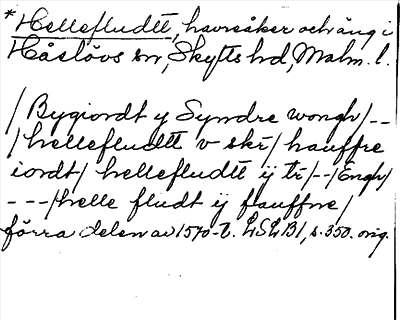 *Hellefludtt, havreåker och äng i
Håslövs sn, Skytts hd, Malm. l.
/ Bygiordt y Syndre wongh/--
/hellefludtt v skr/ hauffre
iordt/ hellefludtt ij tr/--/Engh/
---/helle fludt ij flauffne/
förra delen av 1570-t. LSLB1, s. 350. orig.